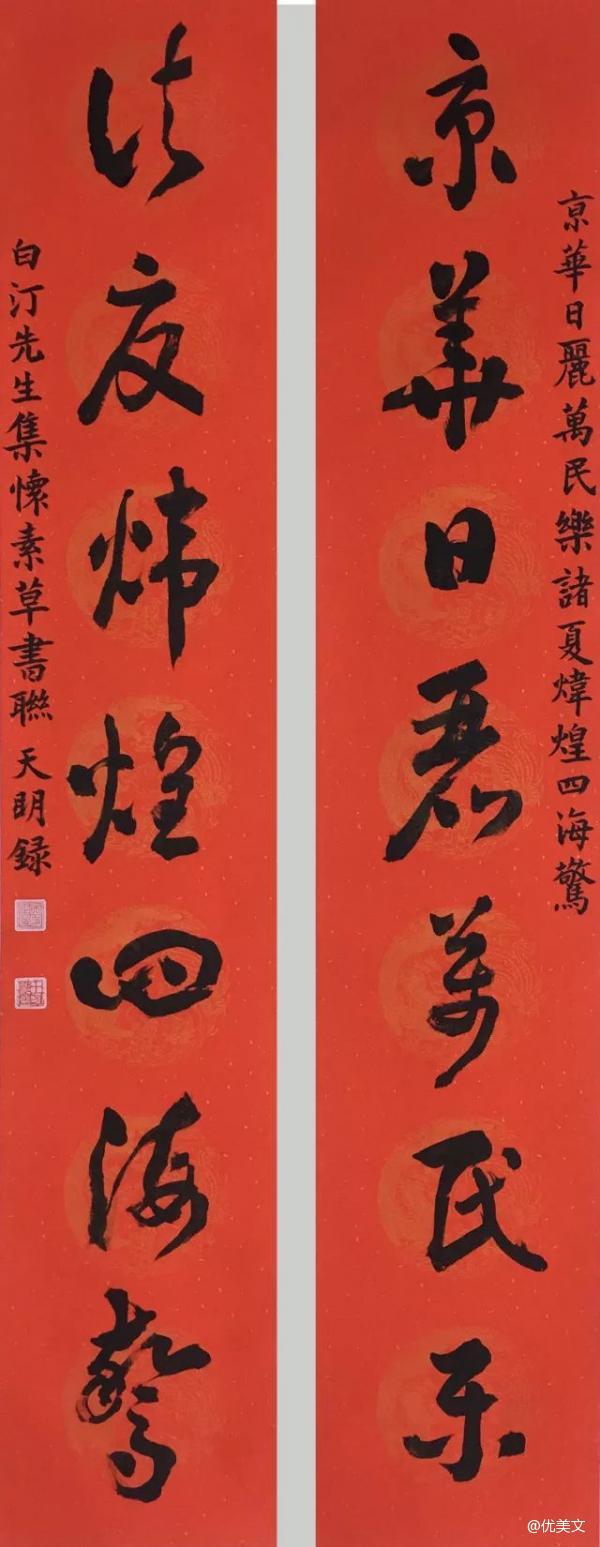 京華日麗萬民樂諸夏煒煌四海驚
京華日麗萬民樂
諸夏煒煌四海驚
白汀先生集懷素草書聯 天明録
@优美文